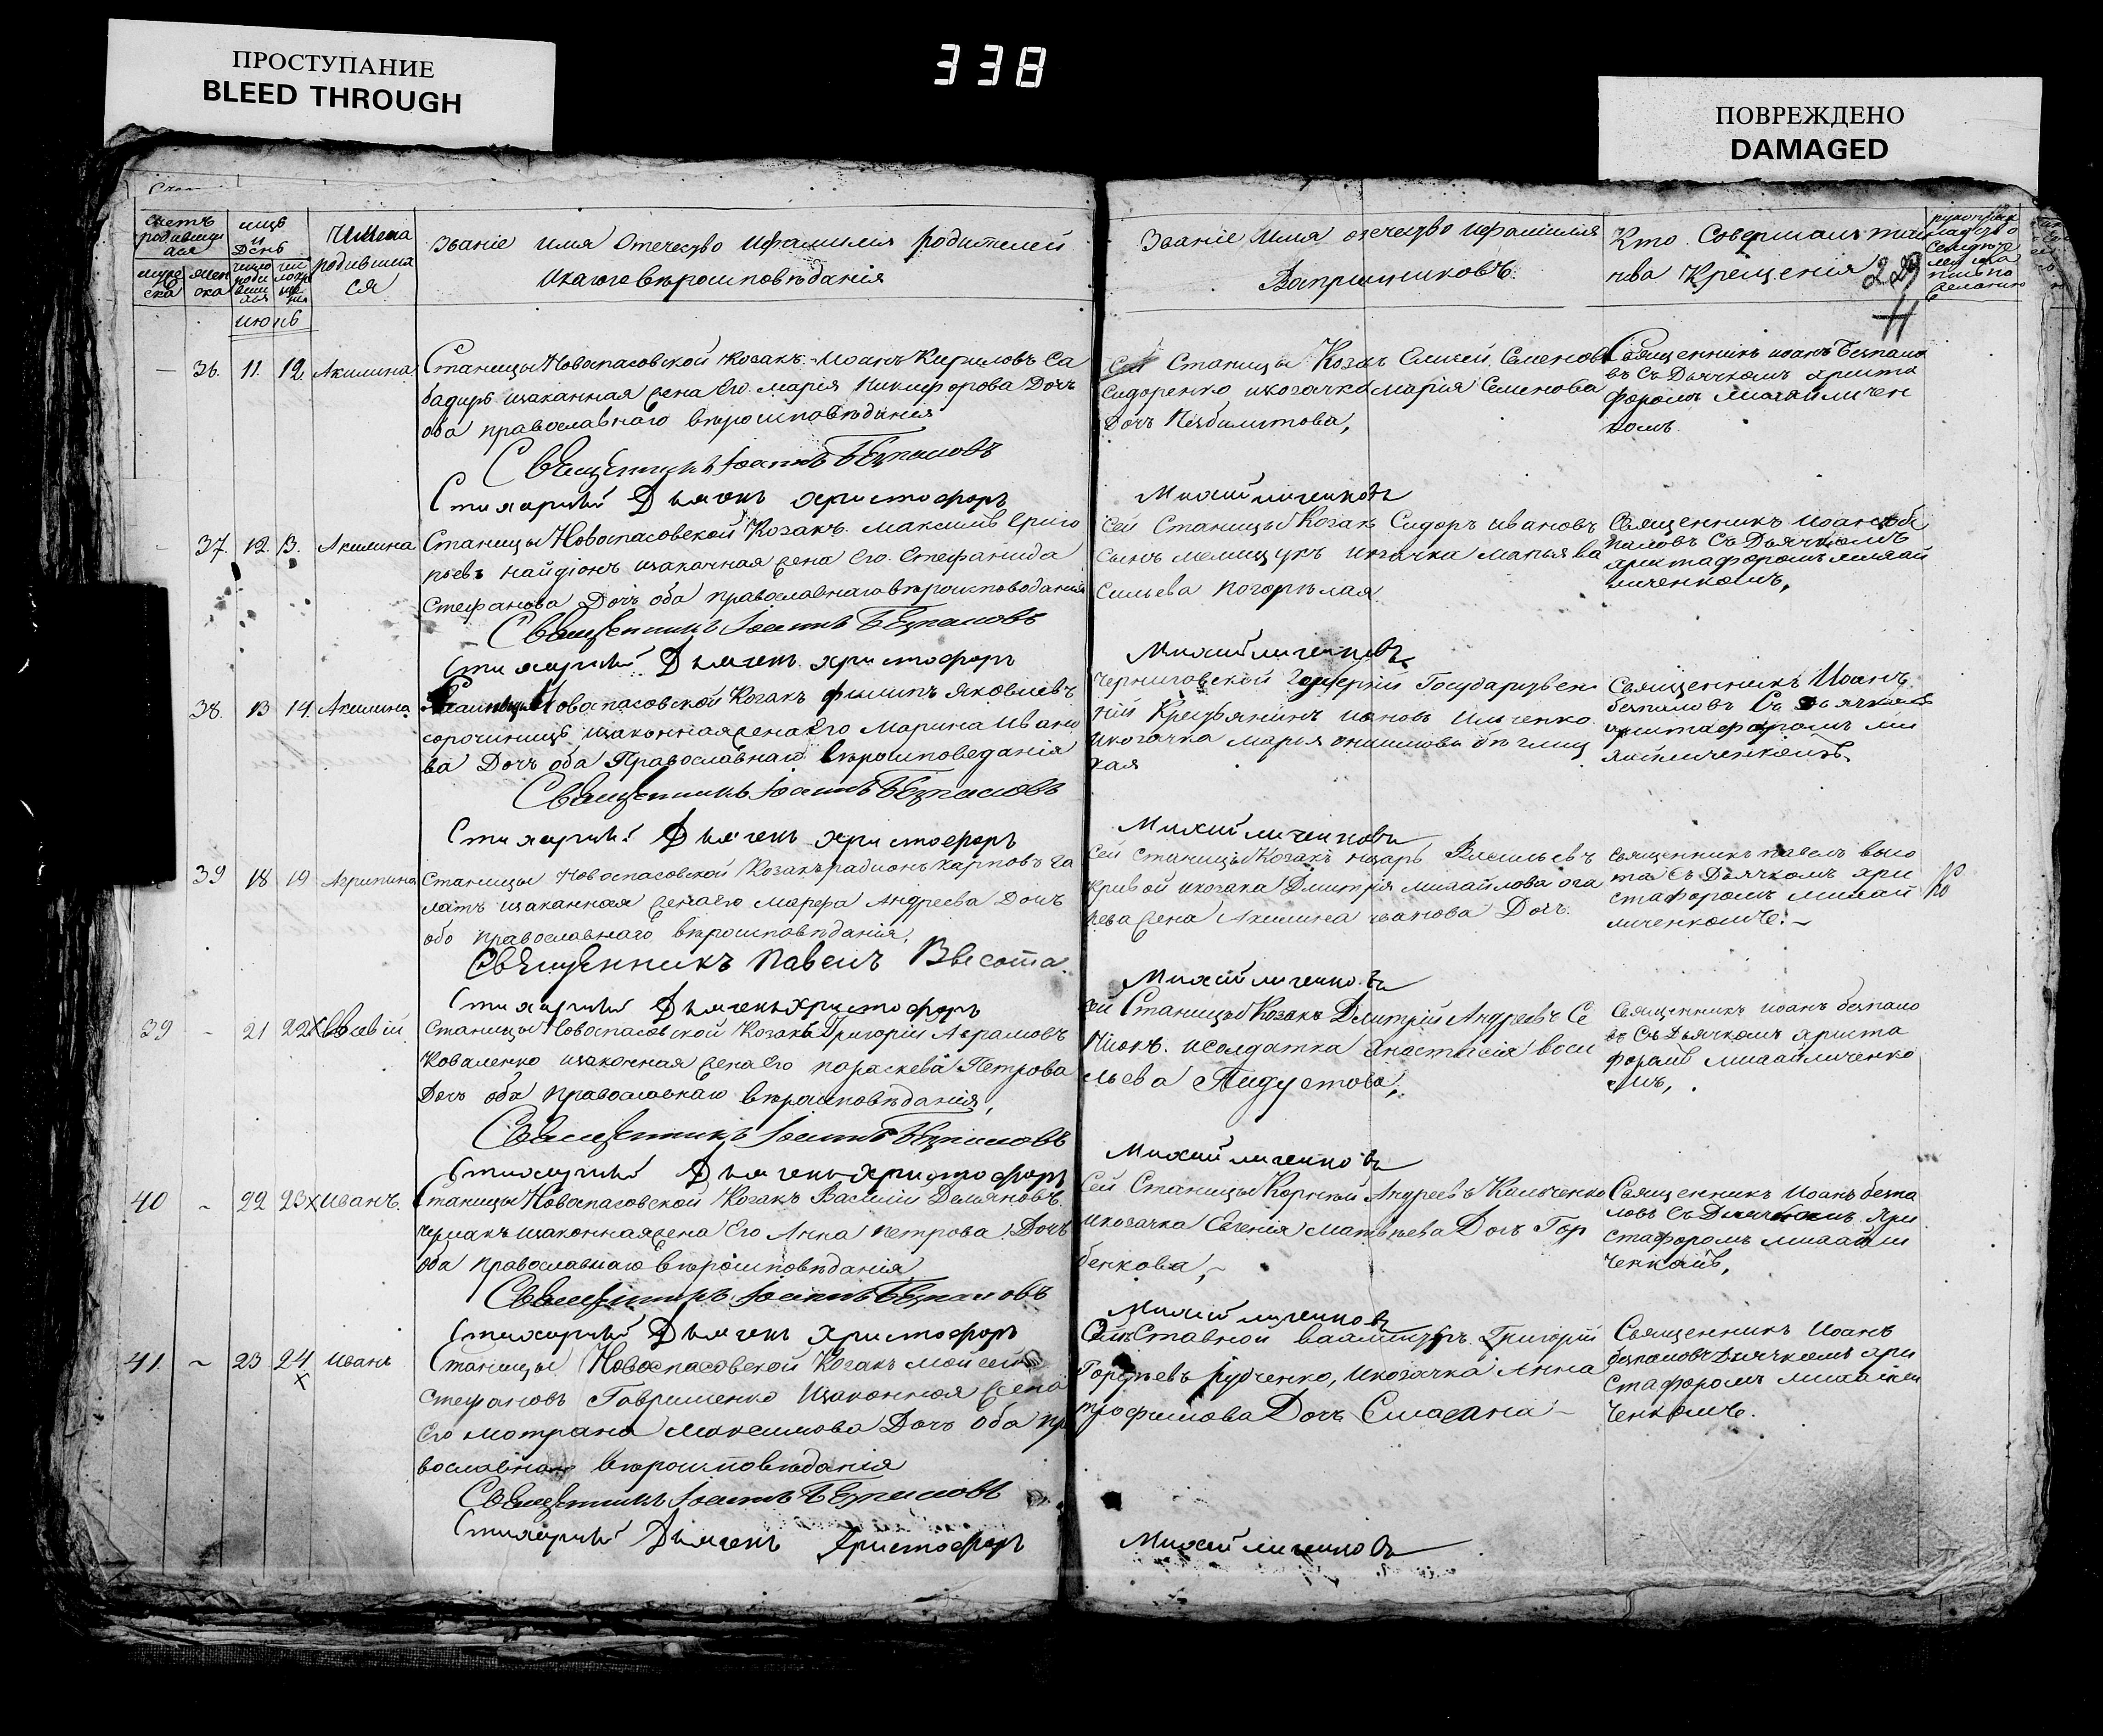 ПРОСТУПАНИЕ
BLEED THROUGH
338
ПОВРЕЖДЕНО
DAMAGED
счетъ родившихся
мужеска женска
мцъ и день
Имена родившихся
Званіе имя Отечество ифамилія родителей
икагоговѣроисповѣданія
Званіе Имя отечество ифамилія
Воприемниковъ.
Кто Совершалъ таин
ства Крещенія
июнь
36. 11. 12. Акилина
Станицы Новоспасовской Козакъ Иоанъ Кириловъ
изаканная жена Его Марія Никифорова Дочь
оба православнаго вѣроисповѣданія
Священникъ Іоаннъ Безпаловъ
Стихарный Дьячекъ Христофоръ
Сей Станицы Козакъ Елисей Семеновъ
Сидоренко икозачка Мария Семенова
Дочь
Священникъ иоанъ Безпало
въ Съ Дьячкомъ христа
форомъ Михайличен
комъ
Михайличенковъ
37. 12. 13. Акилина
Станицы Новоспасовской Козакъ Максимъ Григо
рьевъ Найдіонъ изаконная жена Его Стефанида
Стефанова Дочь оба православнаго вѣроисповѣданія
Священникъ Іоаннъ Безпаловъ
Стихарный Дьячекъ Христофоръ
Сей Станицы Козакъ Сидоръ Ивановъ
Сынъ Мелищукъ икозачка Марья Ва
сильева погорѣлая
Священникъ Иоанъ без
паловъ Съ Дьячкомъ
христафоромъ михай
личенкомъ,
Михайличенковъ
38. 13 14. Акилина
Станицы Новоспасовской Козакъ Филипъ Яковлевъ
изаконная жена Его Марина Ивано
ва Дочь оба Православнаго вѣроисповеданія
Священникъ Іоаннъ Безпаловъ
Стихарный Дьячекъ Христофоръ
Черниговской Губерніи Государствен
ній Крестьянинъ Ильченко
икозачка Марья
кая
Священникъ Иоанъ
безпаловъ Съ Дьячкомъ
христафоромъ ми
хайличенкомъ
Михайличенковъ
39 18 19 Агрипина
Станицы Новоспасовской Козакъ радионъ Карповъ га
латъ изаканная жена Его Марфа Андреева Дочь
обо православнаго вѣроисповѣданія,
Священникъ Павелъ Высота
Стихарный Дьячекъ Христофоръ
Сей Станицы Козакъ Васильевъ
Кривой икозака Дмитрія Михайлова
жена Акилина иванова Дочь.
Священникъ павелъ высо
та Съ Дьячкомъ хри
стафоромъ михай
личенкомъ.
Михайличенковъ
39 - 21 22
Станицы Новоспасовской Козакъ Григорій Аврамовъ
Коваленко изаконная жена Его параскева Петрова
Дочь оба православнаго вѣроисповѣданія,
Священникъ Іоаннъ Безпаловъ
Стихарный Дьячекъ Христофоръ
Сей Станицы Козакъ Дмитрій Андреевъ Се
исолдатка Анастасія васи
льева
Священникъ иоанъ безпало
въ Съ Дьячкомъ христа
форомъ михайличенко
мъ,
Михайличенковъ
40 - 22 23 Иванъ.
Станицы Новоспасовской Козакъ Василій Демьяновъ
изаконная жена Его Анна петрова Дочь
оба православнаго вѣроисповѣданія
Священникъ Іоаннъ Безпаловъ
Стихарный Дьячекъ Христофоръ
Сей Станицы Корней Андреевъ
икозачка Евгенія Матвѣева Дочь Гор
бенкова,
Священникъ Иоанъ безпа
ловъ Съ Дьячкомъ хри
стафоромъ михайли
ченкомъ,
Михайличенковъ
41. - 23 24 иванъ
Станицы Новоспасовской Козакъ Мойсей
Стефановъ Гавриленко изаконная жена
Его мотрана Максимова Дочь оба пра
вославнаго вѣроисповѣданія
Священникъ Іоаннъ Безпаловъ
Стихарный Дьячекъ Христофоръ
Григорій
Рудченко, икозачка Анна
трофимова Дочь
Священникъ Иоанъ
безпаловъ Дьячкомъ хри
стафоромъ михайли
ченкомъ.
Михайличенковъ